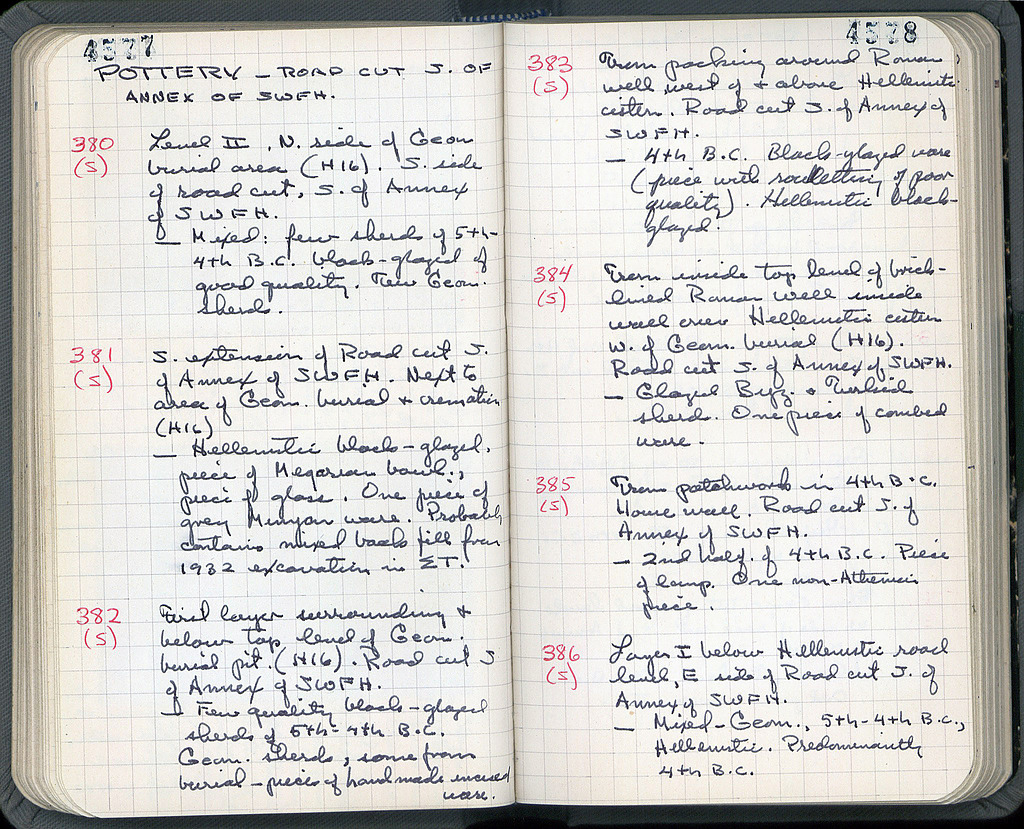 4577
POTTERY — ROAD CUT S. OF
ANNEX OF SWFH.
380
(S)
Level II, N. side of Geom
burial area (H16). S. side
of road cut, S. of Annex
of SWFH.
— Mixed: few sherds of 5th-
4th B.C. black-glazed of
good quality. Few Geom.
sherds.
381
(S)
S. extension of Road cut S.
of Annex of SWFH. Next to
area of Geom. burial + cremation
(H16)
— Hellenistic black-glazed,
piece of Megarian bowl,
piece of glass. One piece of
grey Minyan ware. Probably
contains mixed back fill from
1932 excavation in ΣT.
382
(S)
First layer surrounding +
below top level of Geom.
burial pit. (H16). Road cut S
of Annex of SWFH.
— Few quality black-glazed
sherds of 5th-4th B.C.
Geom. sherds, some from
burial - pieces of handmade incised
ware.
4578
383
(S)
From packing around Roman
well west of + above Hellenistic
cistern. Road cut S. of Annex of
SWFH.
— 4th B.C. Black-glazed ware
(piece with rouletting of poor
quality). Hellenistic black-
glazed.
384
(S)
From inside top level of brick-
lined Roman well inside
well over Hellenistic cistern
W. of Geom. burial (H16).
Road cut S. of Annex of SWFH.
— Glazed Byz. + Turkish
sherds. One piece of combed
ware.
385
(S)
From patchwork in 4th B.C.
House wall. Road cut S. of
Annex of SWFH.
— 2nd half of 4th B.C. Piece
of lamp. One non-Athenian
piece.
386
(S)
Layer I below Hellenistic road
level, E side of Road cut S. of
Annex of SWFH.
— Mixed-Geom., 5th-4th B.C.,
Hellenistic. Predominantly
4th B.C.